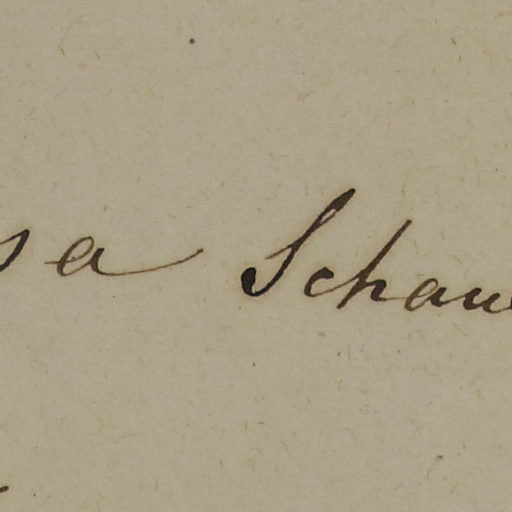 sa Schau